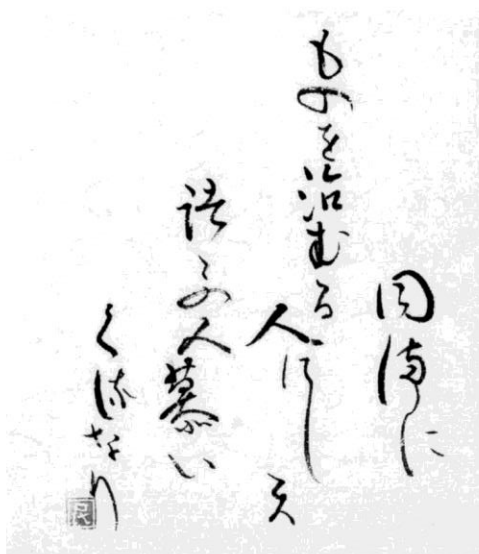 圓満に
ものを治むる
人にして
諸々の人慕い
くるなり